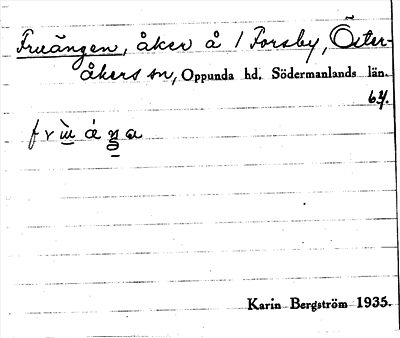 Fruängen, åker å 1 Forsby, Öster-
åkers sn, Oppunda hd. Södermanlands län.
Karin Bergström 1935.